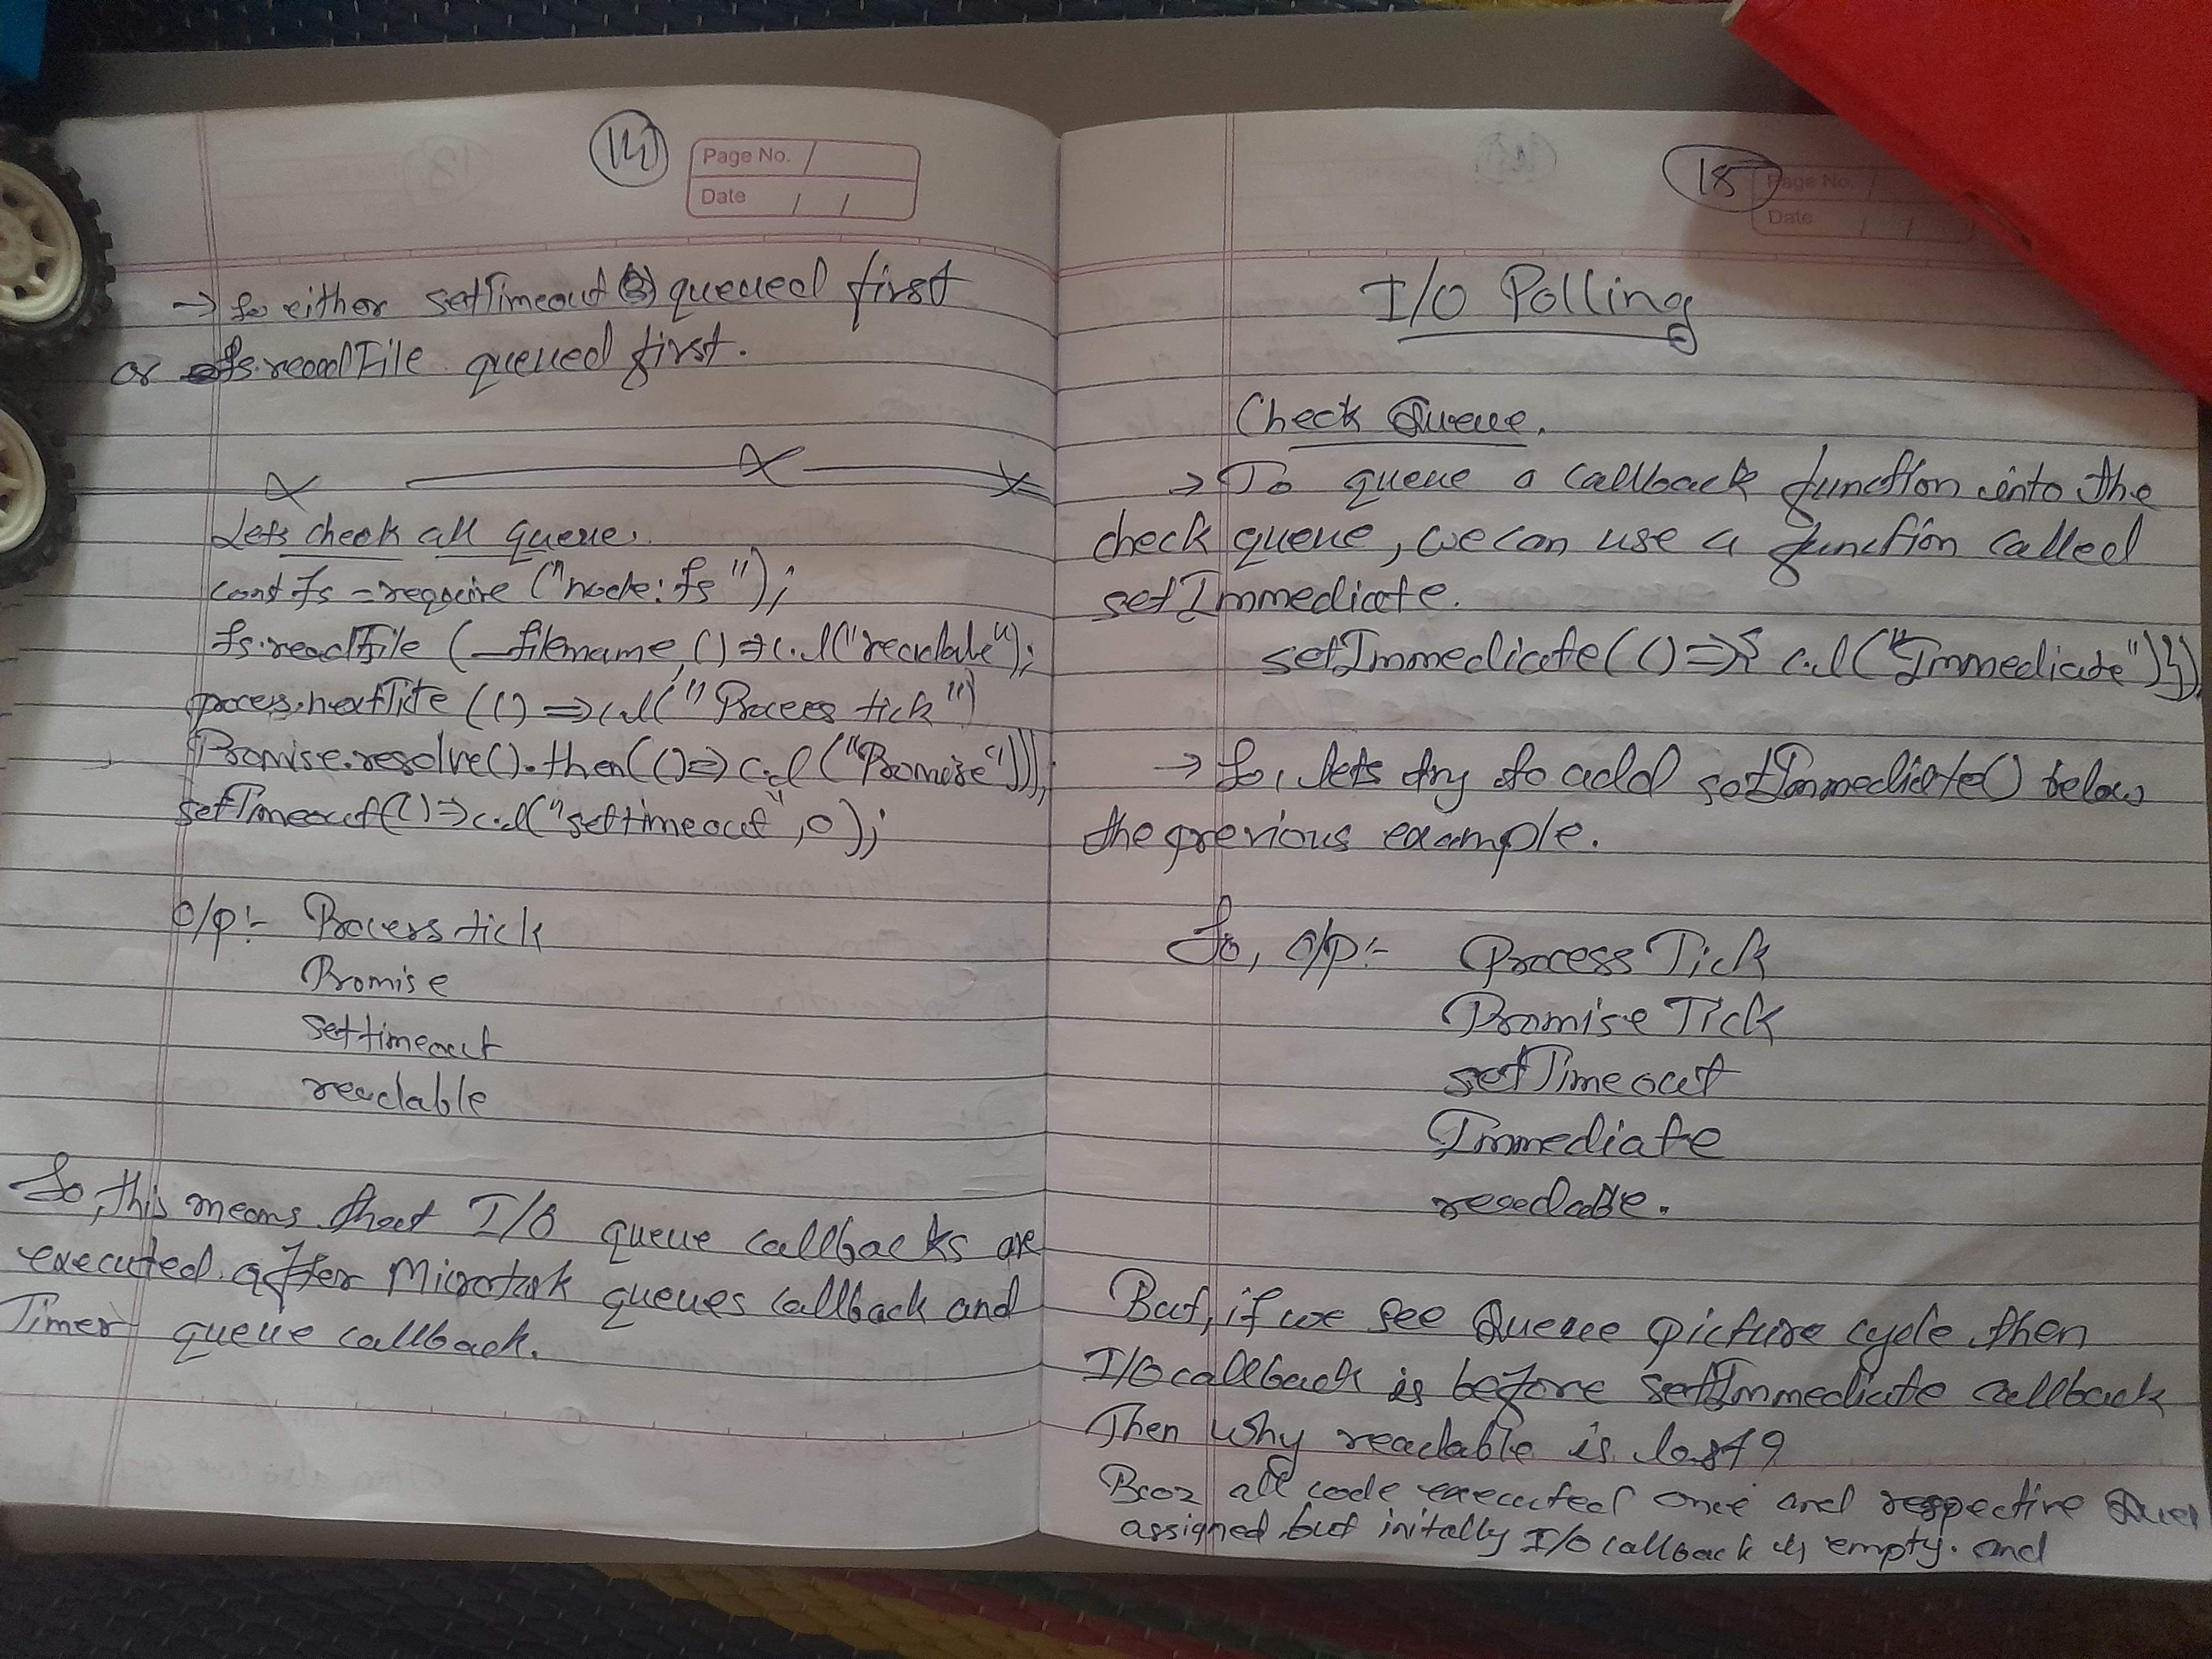 14
Page No.
Date
→ So either setTimeout queued first
or fs.readFile queued first.
Lets check all queue.
const fs = require ("node:fs");
fs.readFile (__filename, () => c.l("readable");
process.nextTick (() => c.l("Process tick")
Promise.resolve().then(() => c.l("Promise")));
setTimeout(() => c.l("settimeout", 0);
o/p:- Process tick
Promise
settimeout
readable
So, this means that I/O queue callbacks are
executed after Microtask queues callback and
Timer queue callback.
15
Page No.
Date
I/O Polling
Check Queue.
→ To queue a callback function into the
check queue, we can use a function called
setImmediate.
setImmediate(() => { c.l("Immediate")});
→ So, lets try to add setImmediate() below
the previous example.
So, o/p:- Process Tick
Promise Tick
setTimeout
Immediate
readable.
But, if we see Queue picture cycle then
I/O callback is before setImmediate callback
Then why readable is last?
Bcoz all code executed once and respective Quee
assigned but initally I/O callback is empty. and